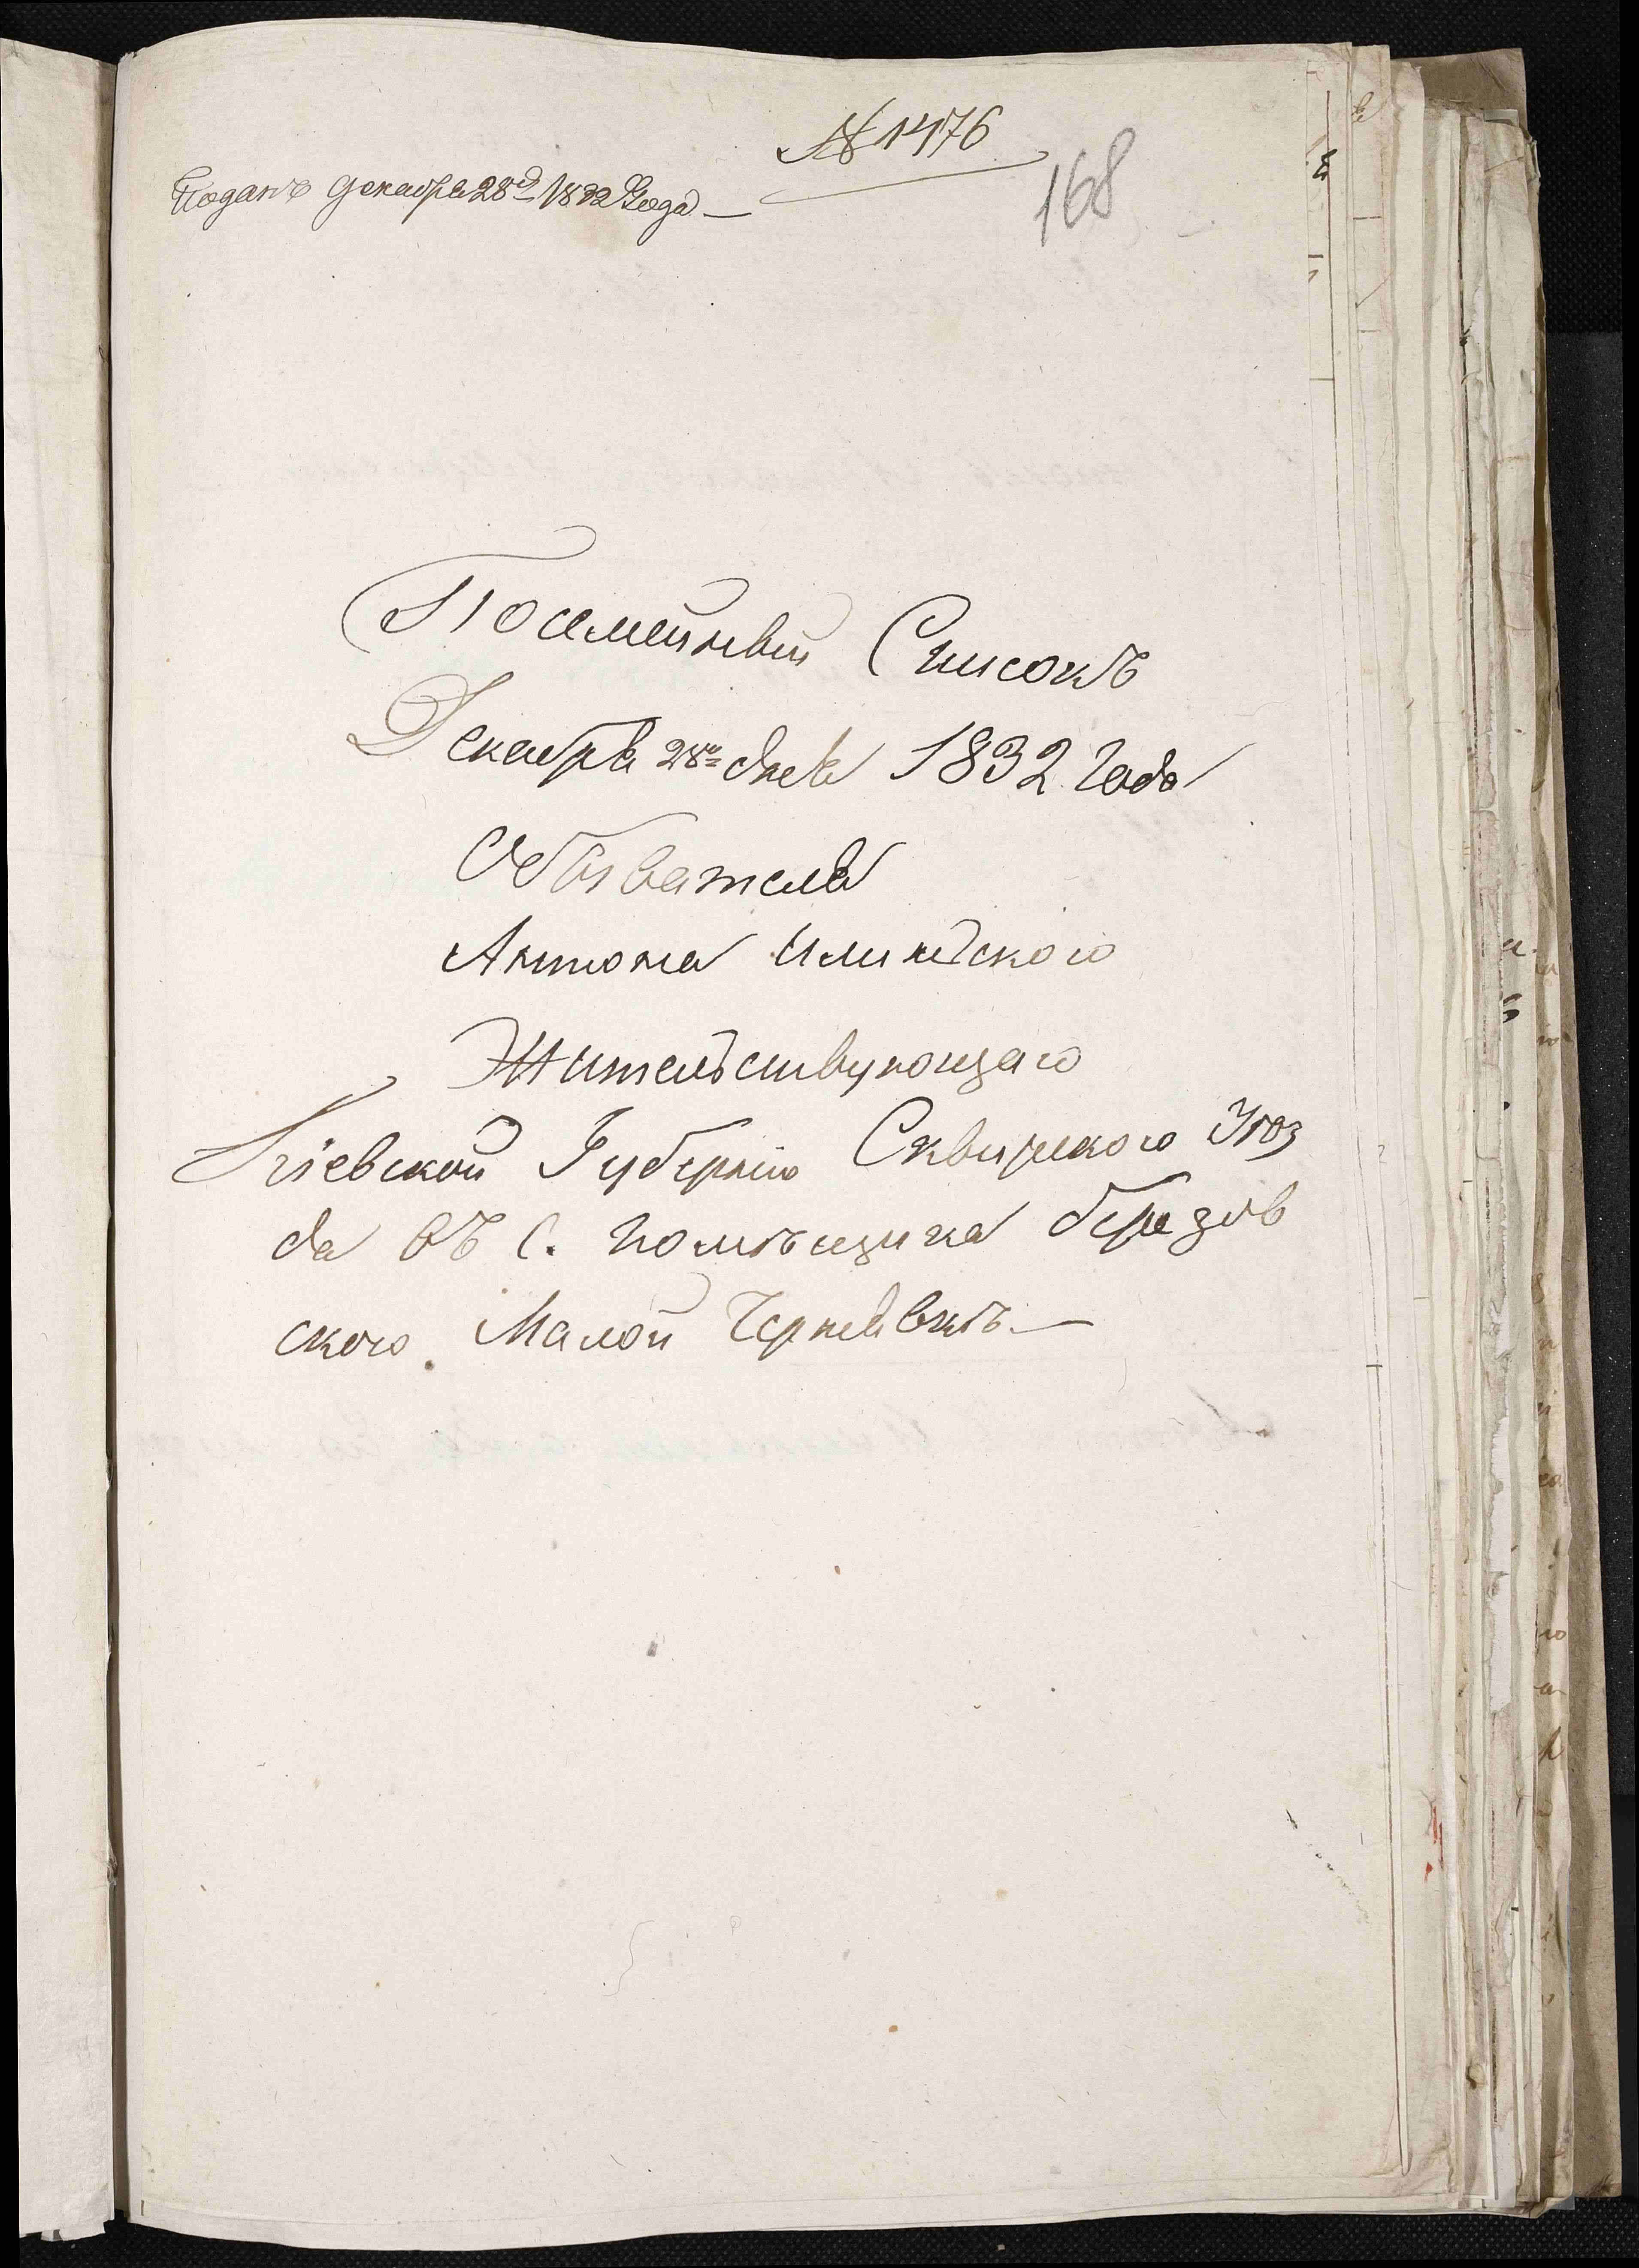 № 1476
Поданъ декабря 28го 1832 Года —
168
Посемейный Списокъ
Декабря 28го дня 1832 Года
Обывателя
Антона Илинского
Жительствующаго
Кіевской Губерніи Сквирского Уѣз
да въ С. помѣщика березов
ского Малой Чернявкѣ —